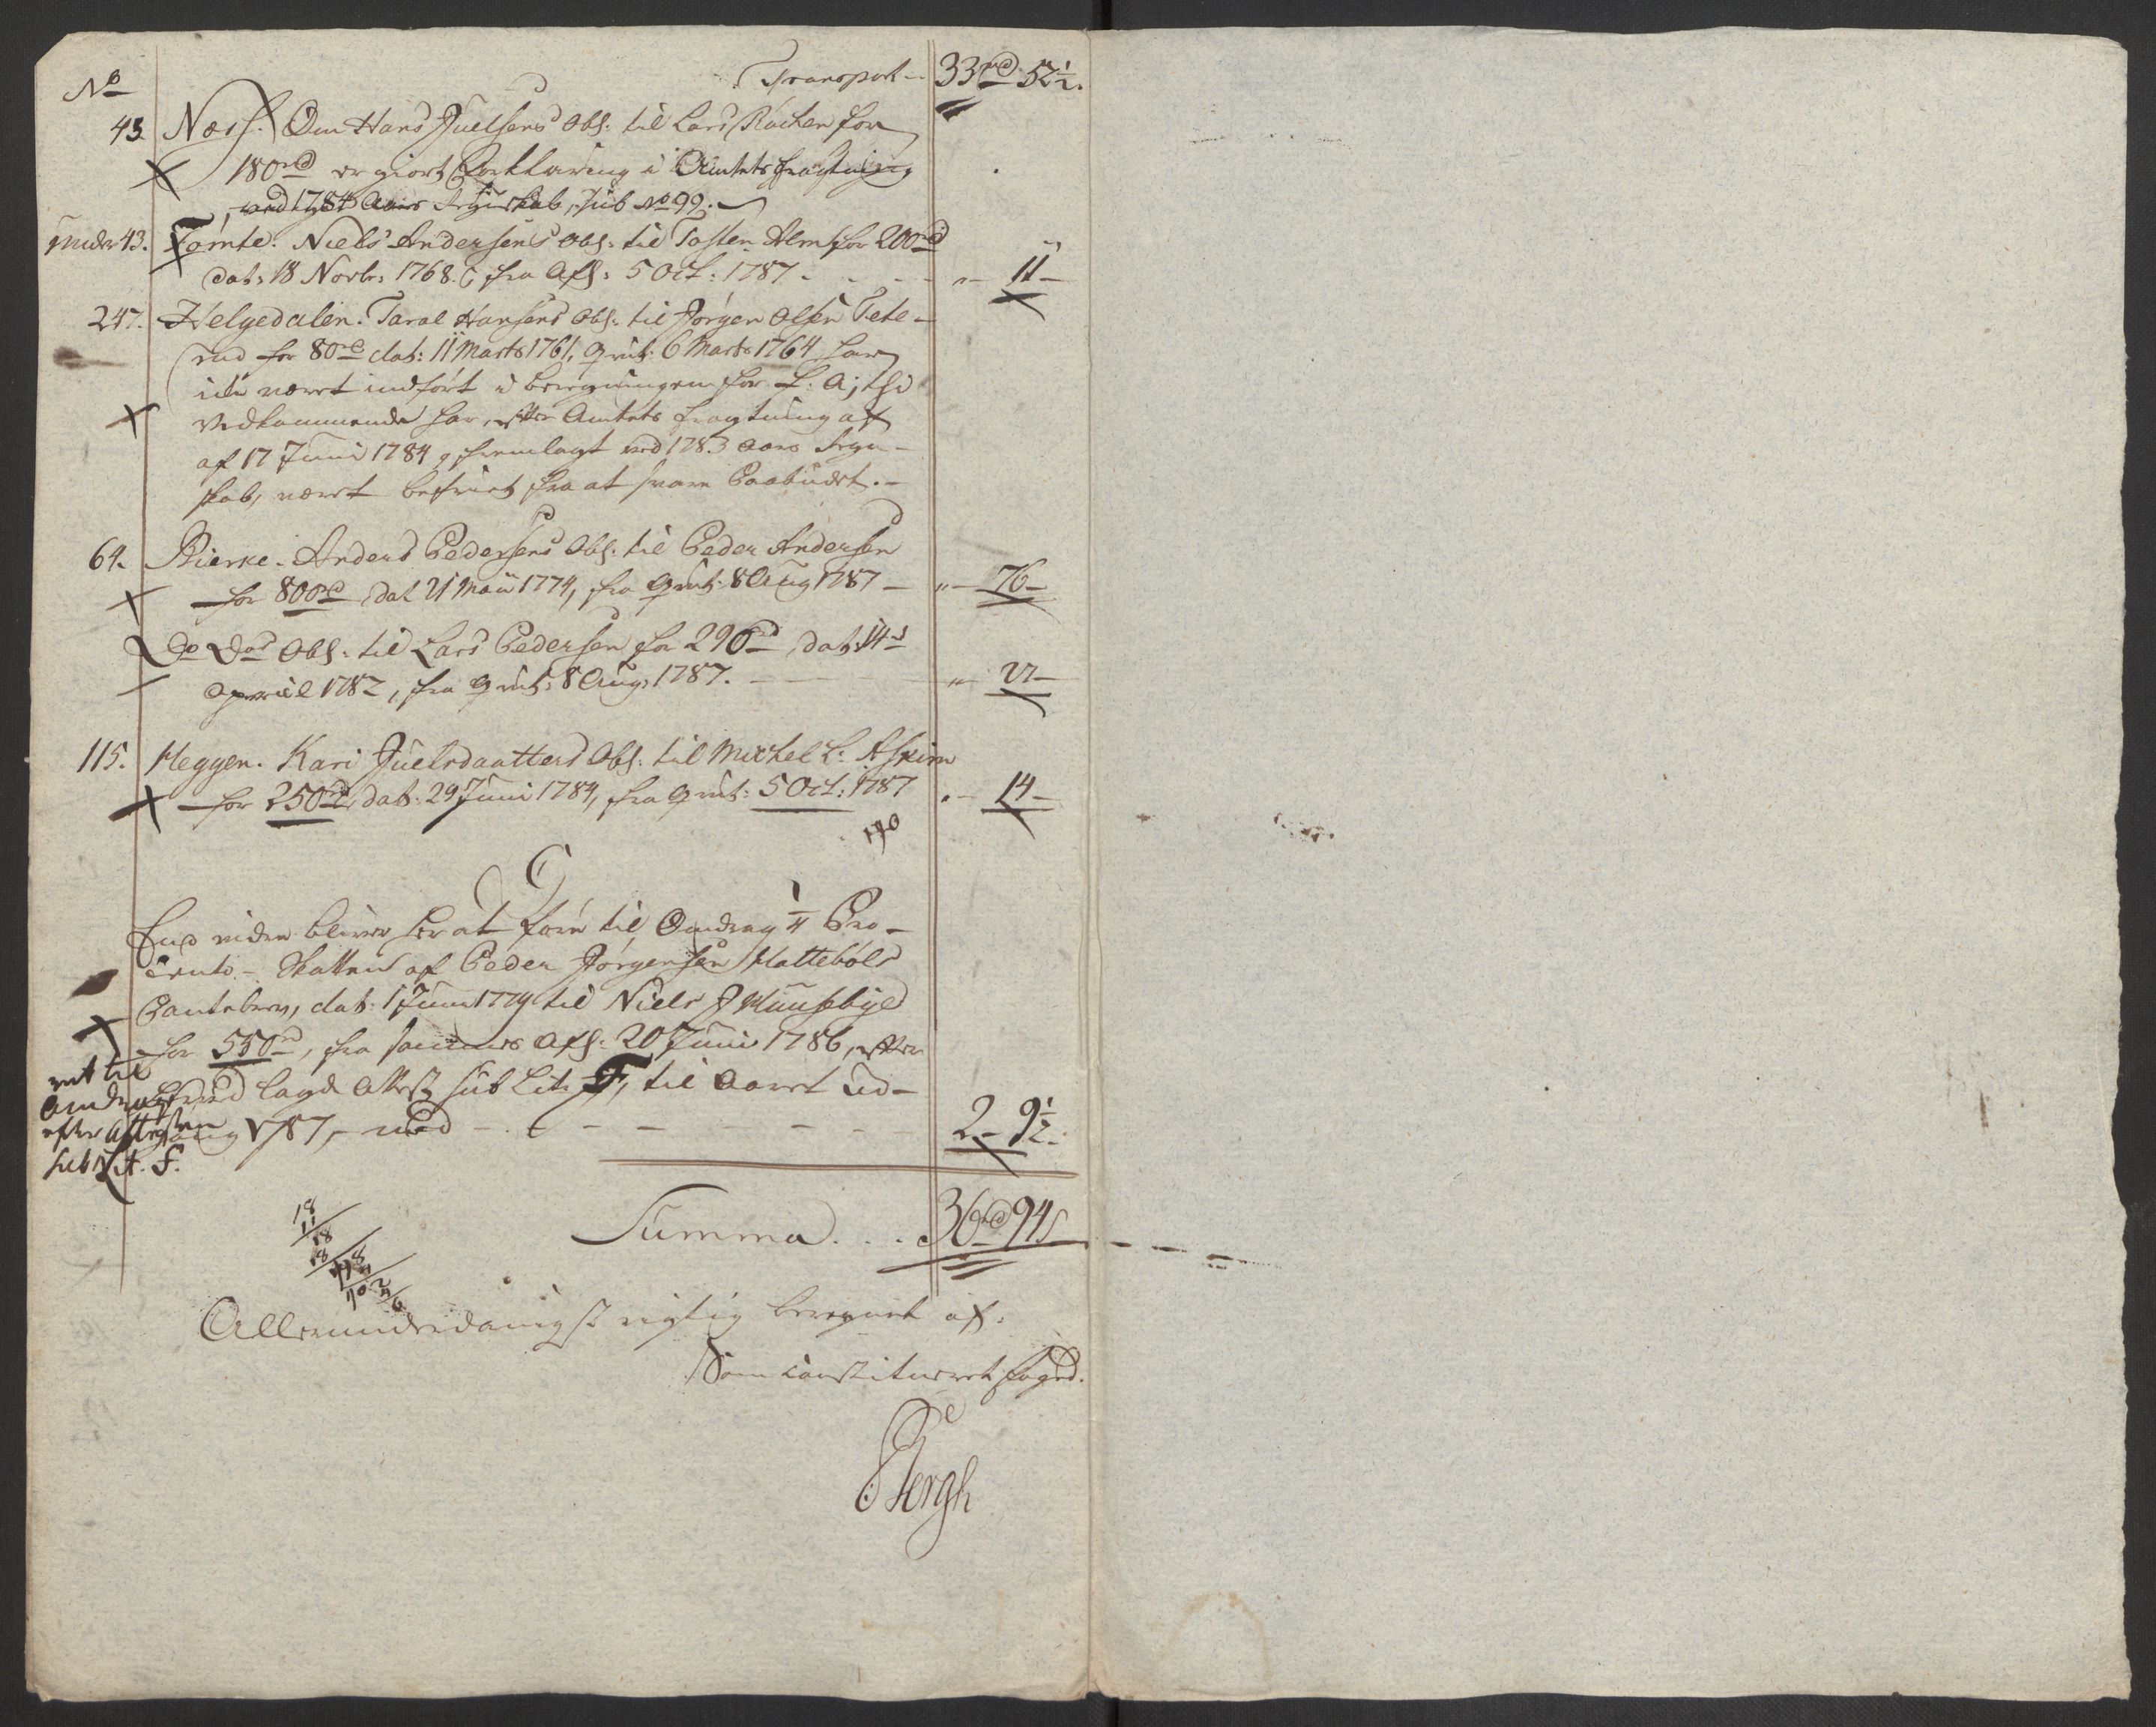 No
Transport - 33rd 52½.
43. Næss. Om Hans Juelsens Obl: til Lars Rachen for
180rd er giort Forklaring i Amtets Fragtning
ved 1784 Aars Regnskab, sub No 99.
under 43. Tomte. Niels Andersens Obl: til Tosten Alm for 200rd
dat: 18 Novbr: 1768. fra Afl: 5 Oct: 1787 - - - - „ - 11 -
247. Helgedalen. Taral Hansens Obl: til Jørgen Olsen Tete-
rud for 80rd dat: 11 Marts 1761, qvit: 6 Marts 1764 har
ikke været indført i beregningen for f: A; thi
Vedkommende har, efter Amtets Fragtning af
af 17 Junii 1784, fremlagt ved 1783 Aars Regn-
skab, været befriet fra at svare Paabudet. -
64. Bierke. Anders Pedersens Obl: til Peder Andersen
for 800rd dat 21 Maii 1774, fra qvit: 8 Aug 1787 - „ - 76 -
Do Dos Obl: til Lars Pedersen for 296rd, dat: 14de
April 1782, fra qvit: 8 Aug: 1787. - „ - 27 -
115. Heggen. Kari Juelsdaatters Obl: til Michel L: Askim
for 250rd, dat: 29 Junii 1784, fra qvit: 5 Oct: 1787 „ - 14 -
170
End videre bliver her at føre til Omdrag ¼ Pro-
Cento - Skatten af Peder Jørgensen Hattebøls
Pantebrev, dat: 1 Junii 1779 til Niels J Huusebye
for 550rd, fra sammes Afl: 20 Junii 1786, efter
lagd Attest sub Lit: F, til Aaret Ud-
gang 1787, - med - - - - - - 2 - 9½.
ret til
Omdrag
efter Attesten
sub Lit. F.
Summa . . . 36rd 94s
18
11
18
18
Allerunderdanigst rigtig beregnet af.
Som constitueret Foged.
Bergh